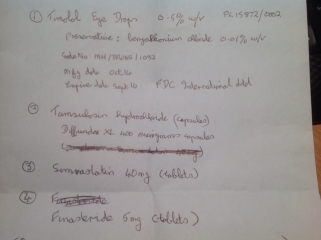 ① Timolol Eye Drops 0.5% w/v PL15872/0002
Preservative: benzalkonium chloride 0.01% w/v
Code No
Mfg date
Expiry date Sept 16 FDC International Ltd
② Tamsulosin Hydrochloride (capsules)
Diffundox XL 400 microgram capsules
③ Simvastatin 40mg (tablets)
④
Finasteride 5mg (tablets)